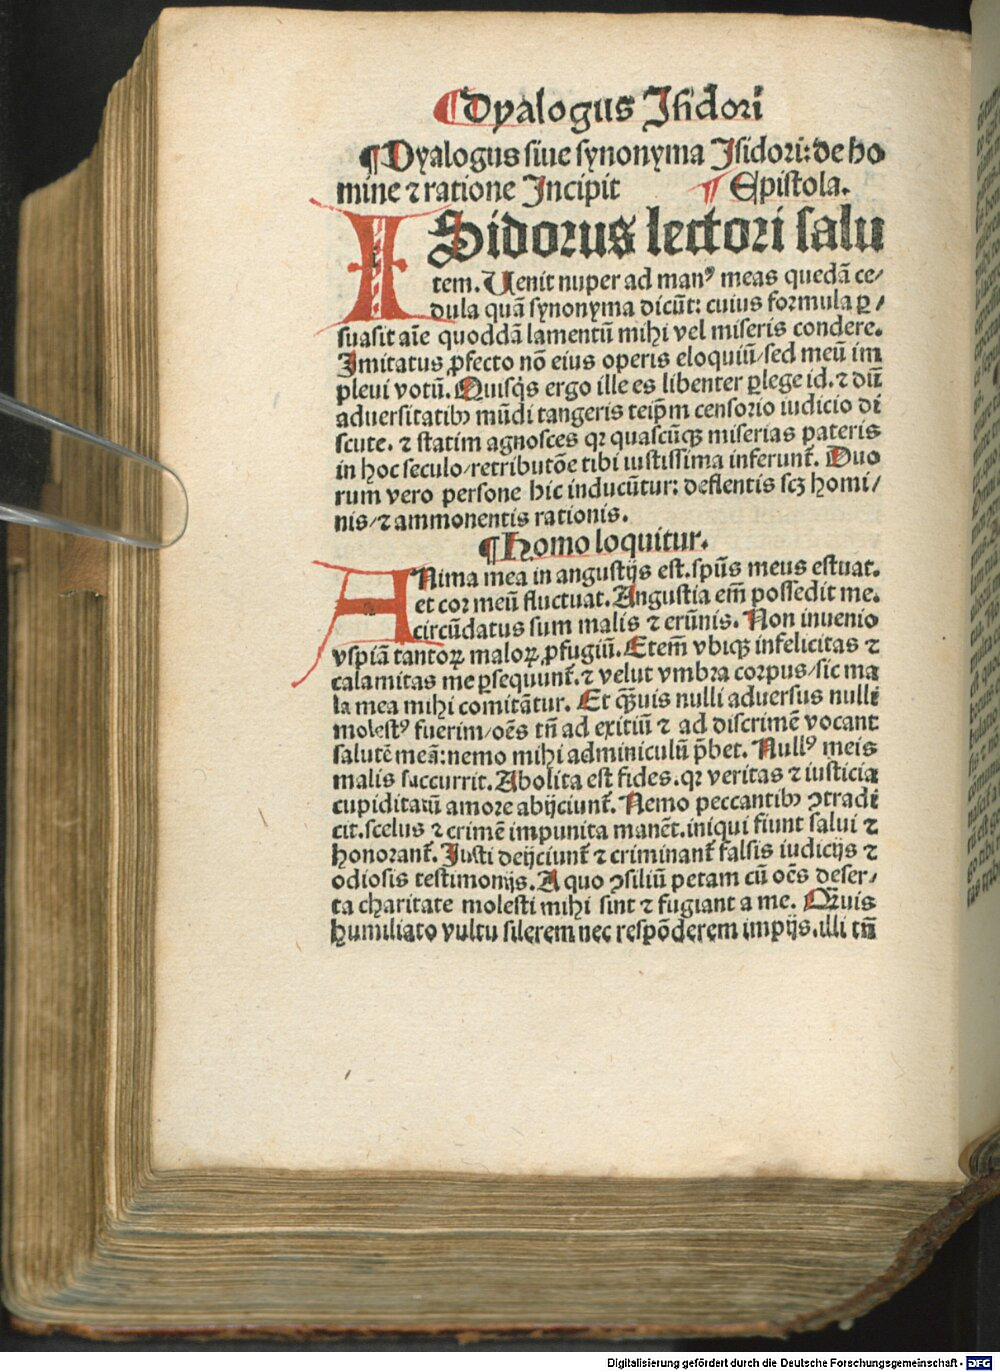 ¶Dyalogus Isidori
¶Dyalogus siue synonyma Isidori: de ho
mine ⁊ ratione Incipit ¶ Epistola.
ISidorus lectori salu
tem. Uenit nuper ad manꝰ meas quedā ce/
dula quā synonyma dicūt: cuius formula ꝑ/
suasit aīe quoddā lamentū mihi vel miseris condere.
Imitatus ꝓfecto nō eius operis eloquiū/sed meū im
pleui votū. Quisq̇s ergo ille es libenter ꝑlege id. ⁊ dū
aduersitatibꝰ mūdi tangeris teip̄m censorio iudicio di
scute. ⁊ statim agnosces qꝛ quascūqꝫ miserias pateris
in hoc seculo/retributōe tibi iustissima inferunt̄. Duo
rum vero persone hic inducūtur: deflentis scꝫ homi/
nis/⁊ ammonentis rationis.
¶Homo loquitur.
ANima mea in angustijs est. spūs meus estuat.
et cor meū fluctuat. Angustia em̄ possedit me.
circūdatus sum malis ⁊ erūnis. Non inuenio
vspiā tantoꝝ maloꝝ ꝓfugiū. Etem̄ vbiqꝫ infelicitas ⁊
calamitas me ꝑsequunt̄. ⁊ velut vmbra corpus/sic ma
la mea mihi comitātur. Et qꝫuis nulli aduersus nulli
molestꝰ fuerim/oēs tn̄ ad exitiū ⁊ ad discrimē vocant
salutē meā: nemo mihi adminiculū p̄bet. Nullꝰ meis
malis succurrit. Abolita est fides. qꝛ veritas ⁊ iusticia
cupiditatū amore abijciunt̄. Nemo peccantibꝰ ꝯtradi
cit. scelus ⁊ crimē impunita manēt. iniqui fiunt salui ⁊
honorant̄. Iusti deijciunt̄ ⁊ criminant̄ falsis iudicijs ⁊
odiosis testimonijs. A quo ꝯsiliū petam cū oēs deser/
ta charitate molesti mihi sint ⁊ fugiant a me. Qꝫuis
humiliato vultu silerem nec respōderem impijs. illi tn̄
Digitalisierung gefördert durch die Deutsche Forschungsgemeinschaft - DFG